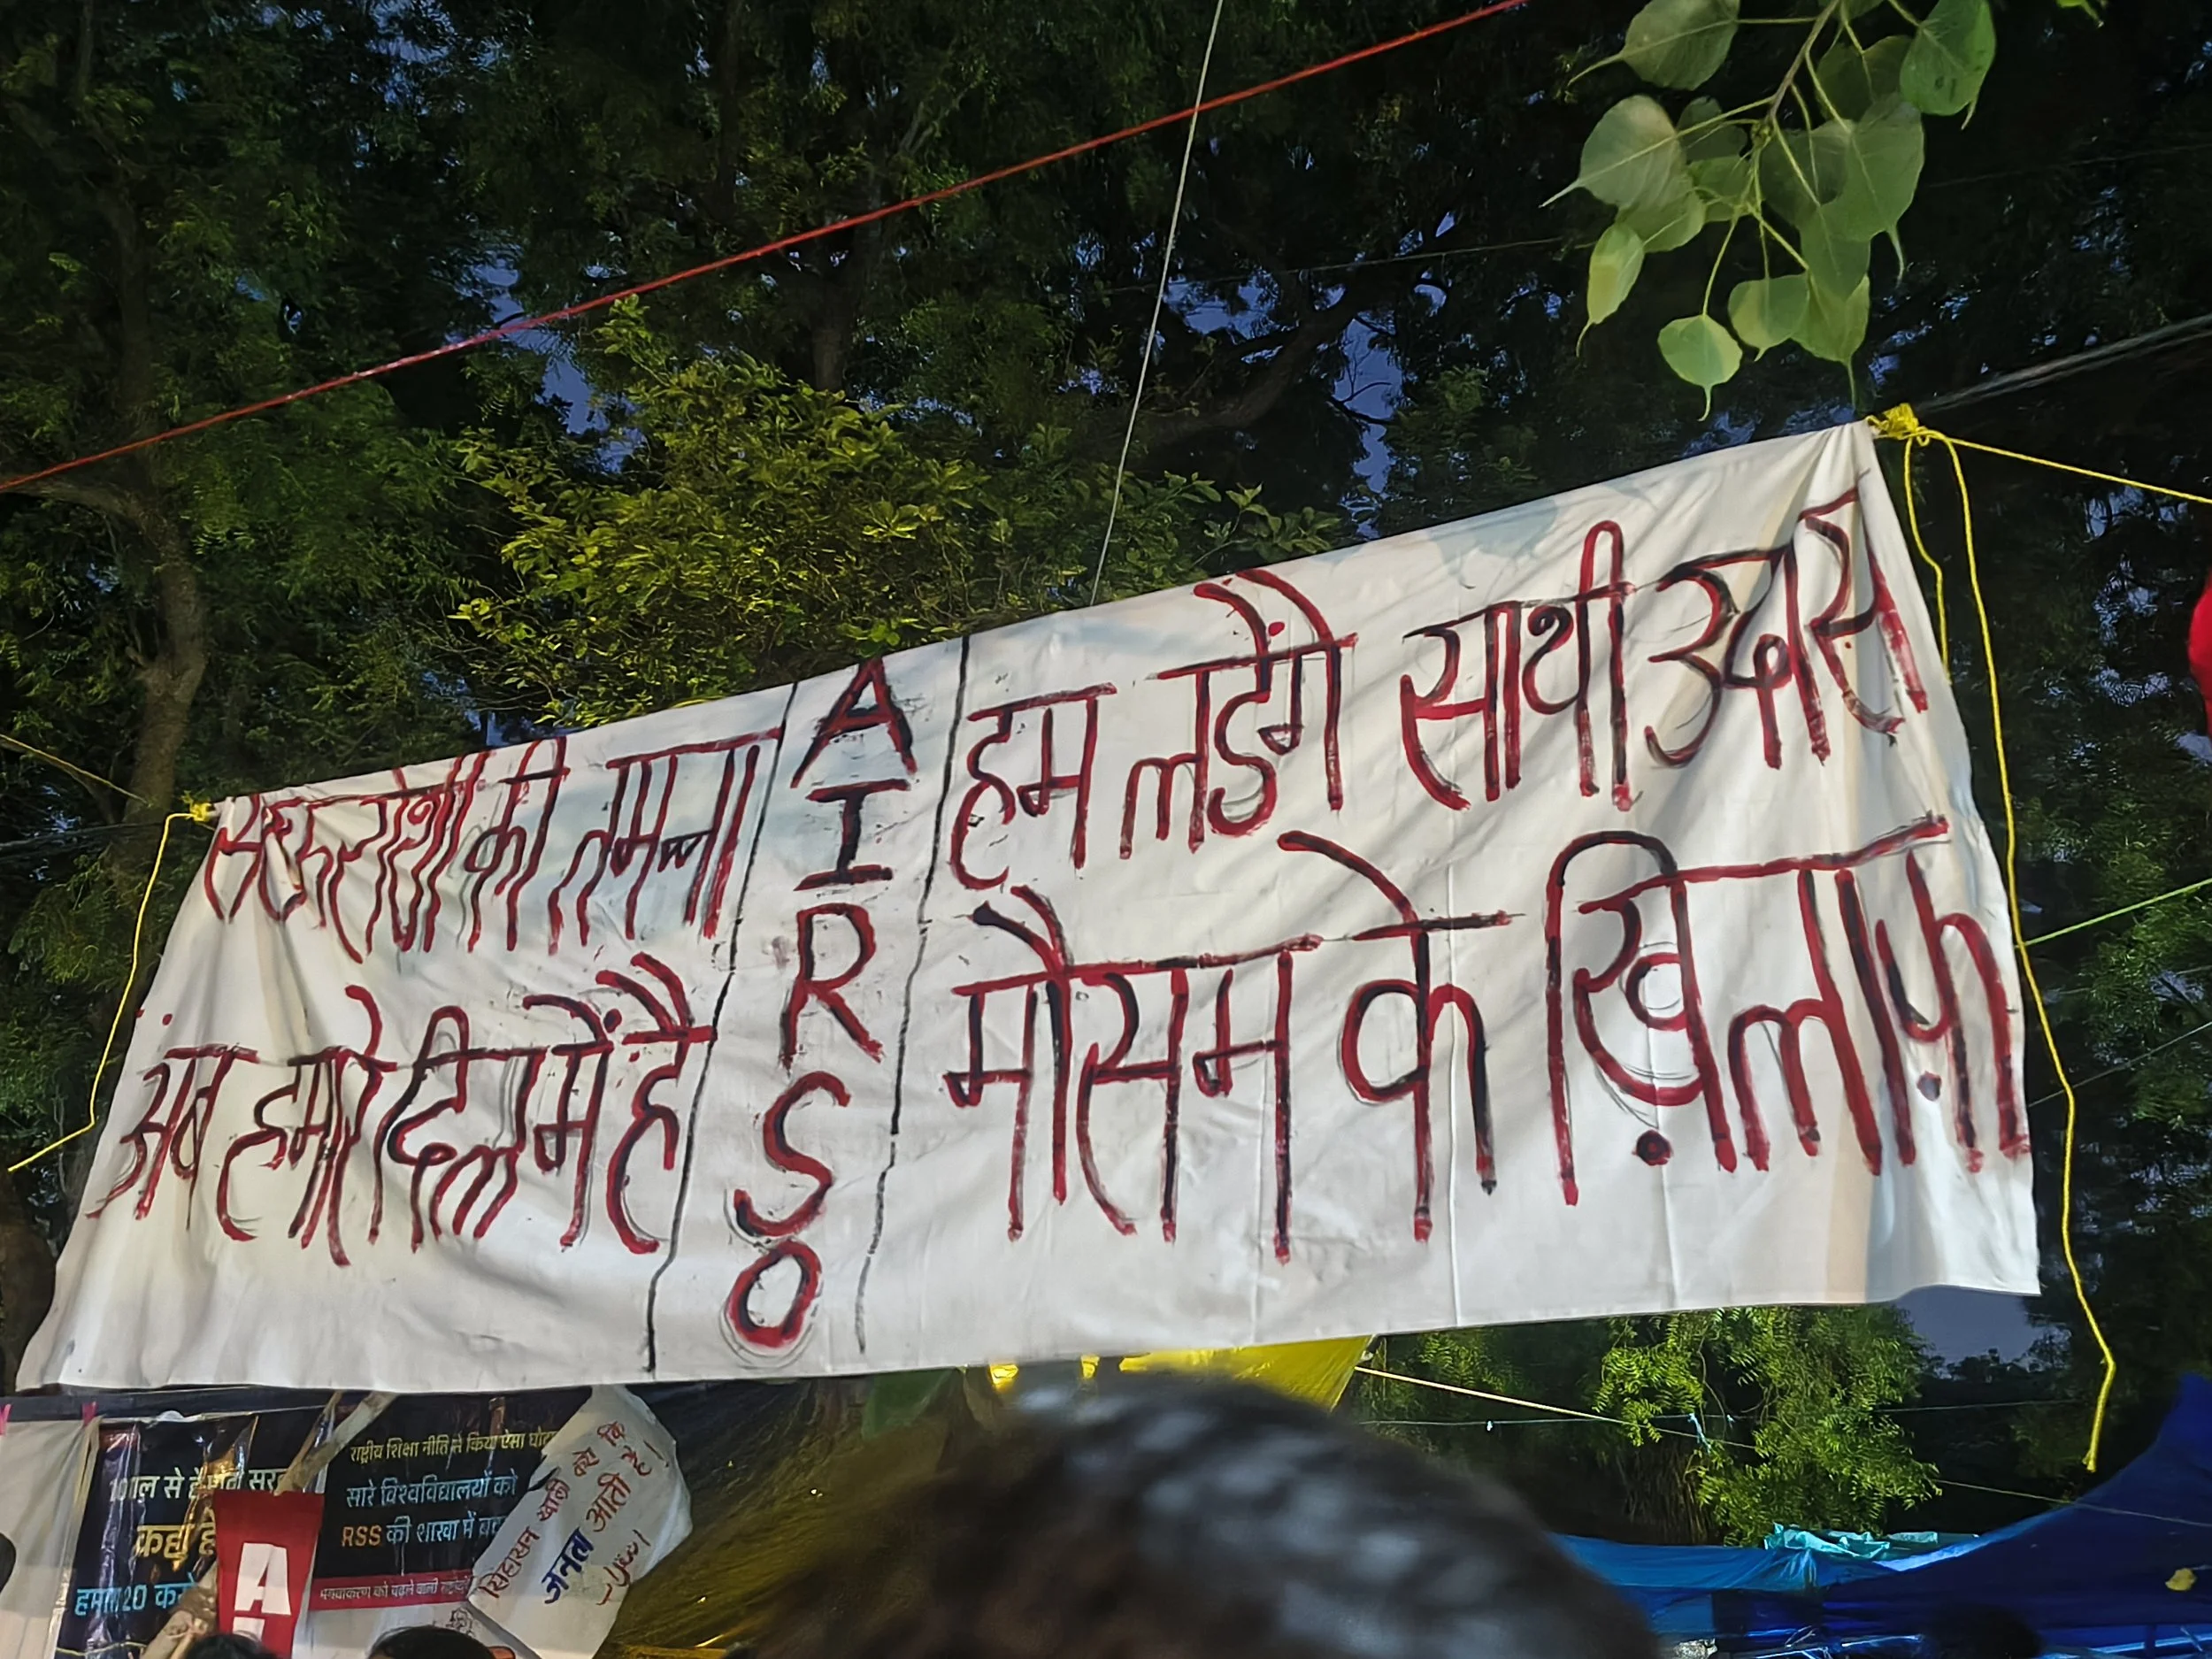 सरफरोशी की तमन्ना
अब हमारे दिल में है
A
I
R
S
O
हम लड़ेंगे साथी उदास
मौसम के ख़िलाफ़
राष्ट्रीय शिक्षा नीति ने किया ऐसा
सारे विश्वविद्यालयों को
RSS की शाखा में
साल से है
कहा
20
A
सिंहासन खाली करो कि
जनता आती है।